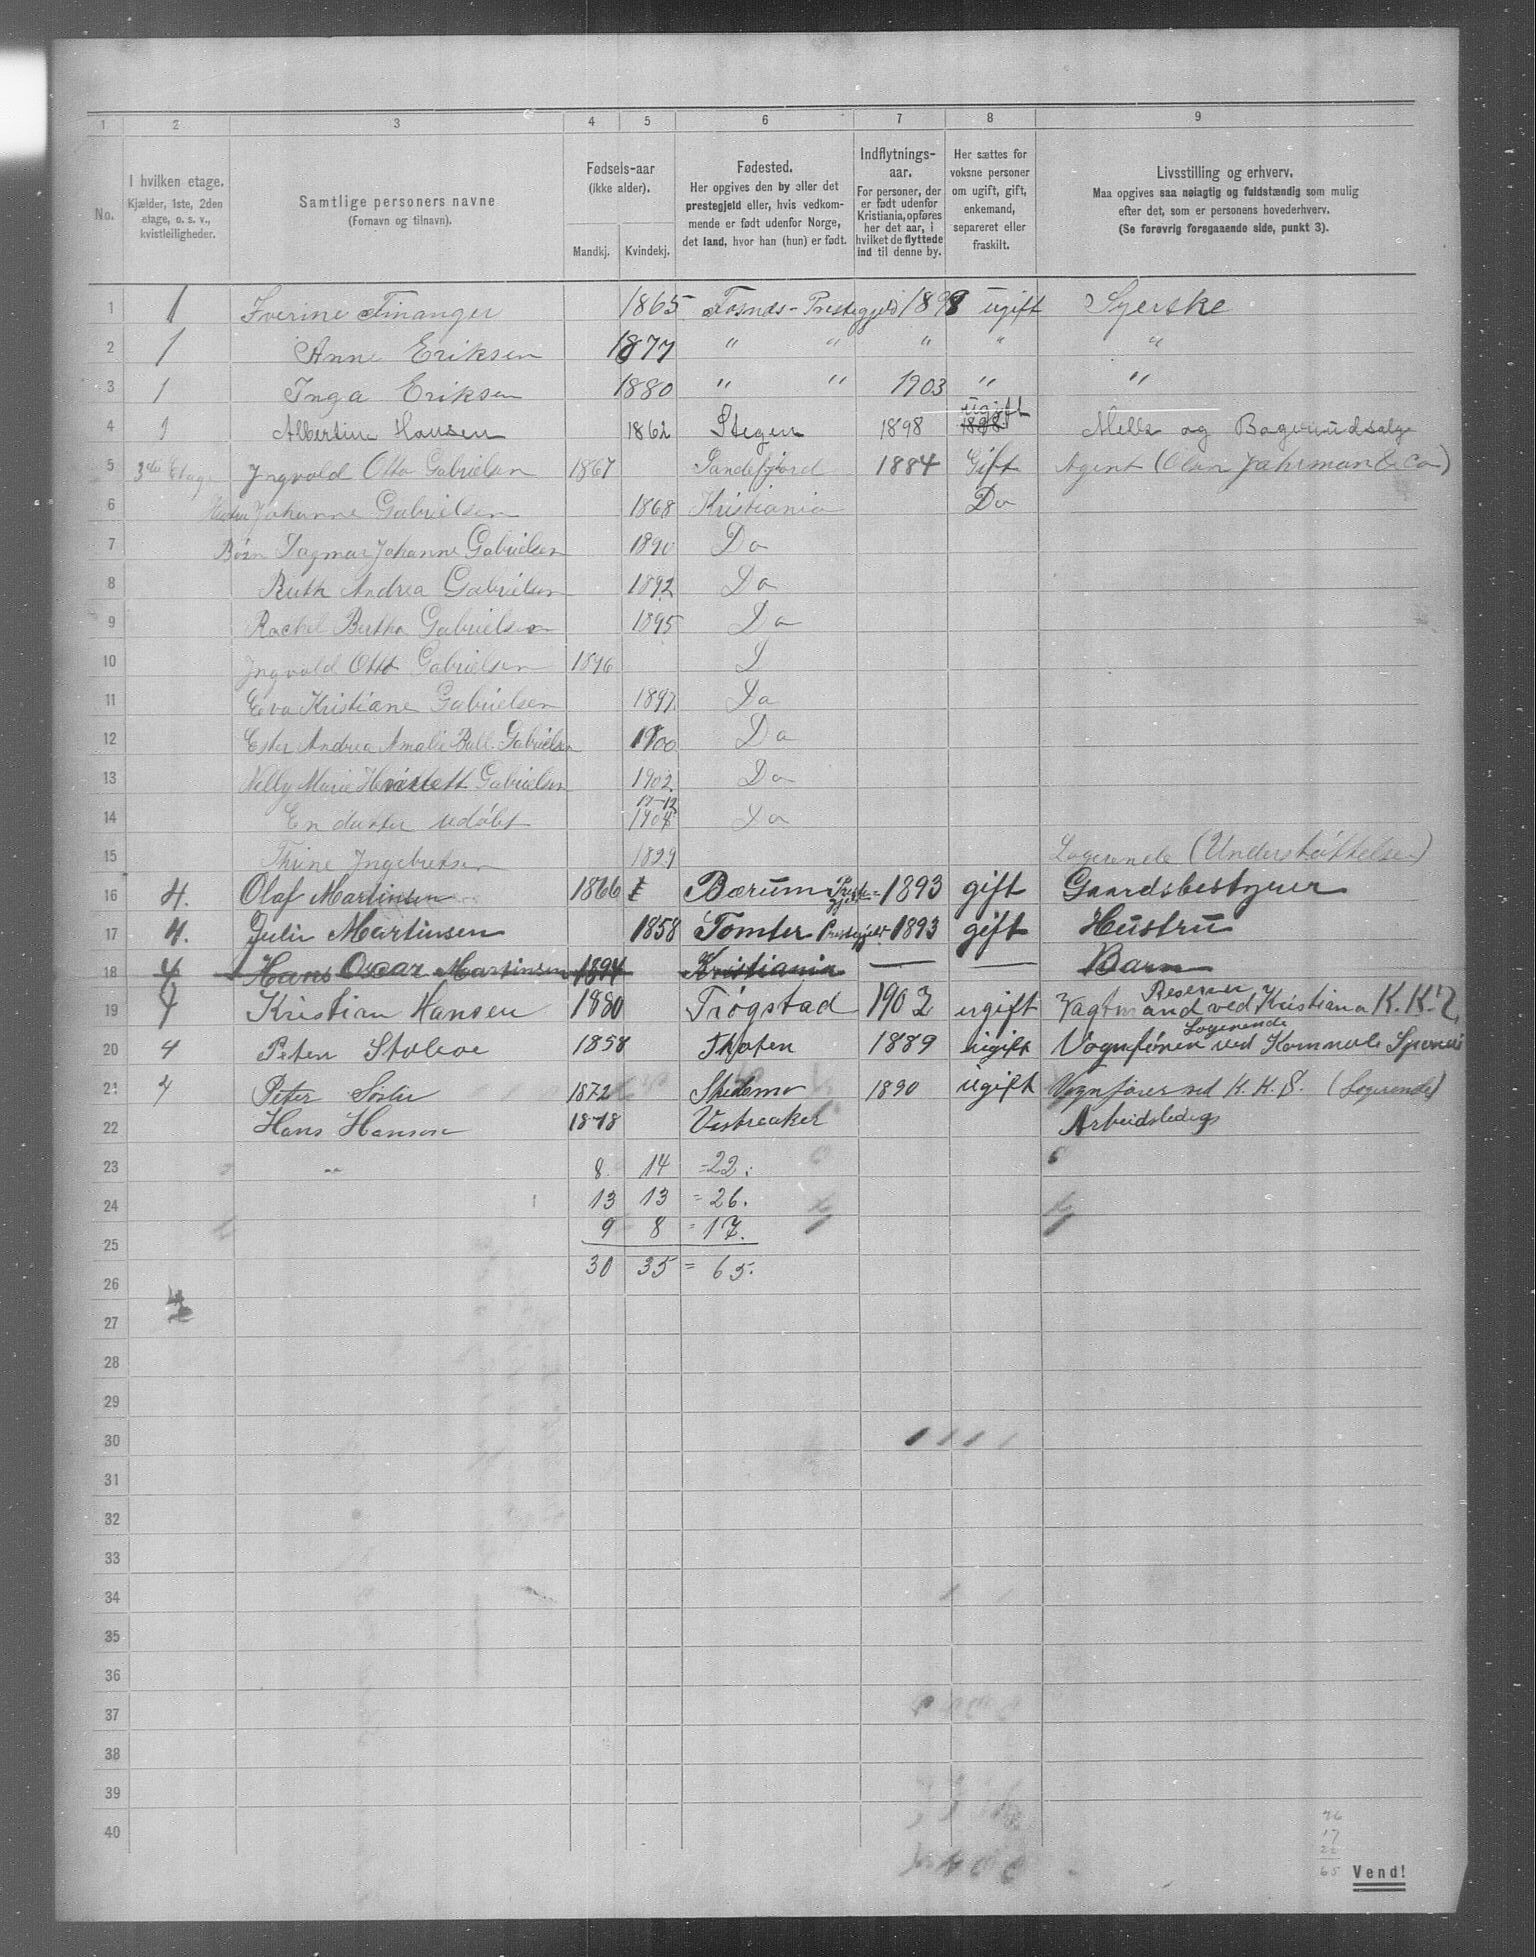 1 2 3 4 5 6 7 8 9
No.
I hvilken etage.
Kjælder, 1ste, 2den
etage, o. s. v.,
kvistleiligheder.
Samtlige personers navne
(Fornavn og tilnavn).
Fødsels-aar
(ikke alder).
Mandkj. Kvindekj.
Fødested.
Her opgives den by eller det
prestegjeld eller, hvis vedkom-
mende er født udenfor Norge,
det land, hvor han (hun) er født.
Indflytnings-
aar.
For personer, der
er født udenfor
Kristiania, opføres
her det aar, i
hvilket de flyttede
ind til denne by.
Her sættes for
voksne personer
om ugift, gift,
enkemand,
separeret eller
fraskilt.
Livsstilling og erhverv.
Maa opgives saa nøiagtig og fuldstændig som mulig
efter det, som er personens hovederhverv.
(Se forøvrig foregaaende side, punkt 3).
1 1 Iverine Finanger 1865 Fosnæs-Prestegjeld 1898 ugift Syerske
2 1 Anne Eriksen 1877 " " " " "
3 1 Inga Eriksen 1880 " " 1903 " "
4 1 Albertine Hansen 1862 Stegen 1898 1898 ugift Melk og Bagerudsalg
5 3die Etage Ingvald Otto Gabrielsen 1867 Sandefjord 1884 Gift Agent (Olsen Jahrman & Co)
6 Hustru Johanne Gabrielsen 1868 Kristiania Do
7 Børn Dagmar Johanne Gabrielsen 1890 Do
8 Ruth Andrea Gabrielsen 1892 Do
9 Rachel Bertha Gabrielsen 1895 Do
10 Ingvald Otto Gabrielsen 1896 D
11 Eva Kristiane Gabrielsen 1897 Do
12 Ester Andrea Amalie Gabrielsen 1900 Do
13 Nelly Marie Gabrielsen 1902 Do
14 En datter udøbt 17-12 1904 Do
15 Thrine Ingebretsen 1829 Logerende (Understøttelse)
16 4. Olaf Martinsen 1866 Bærum Preste-gjeld 1893 gift Gaardsbestyrer
17 4. Julie Martinsen 1858 Tomter Prestegjeld 1893 gift Hustru
18 4 Hans Oscar Martinsen 1894 Kristiania — — Barn
19 4 Kristian Hansen 1880 Trøgstad 1902 ugift Reserve Vagtmand ved Kristiana K.K.
20 4 Peter 1858 Thoten 1889 ugift Logerende Vognfører ved
21 4 Peter 1872 Skedsmo 1890 ugift Vognfører ved K.K.S. (Logerende)
22 Hans Hanson 1878 Vestreaker Arbeidsledig
23 8 14 =22.
24 13 13 = 26.
25 9 8 = 17.
26 30 35 = 65.
27
28
29
30
31
32
33
34
35
36
37
38
39
40
26
17
22
65
Vend!